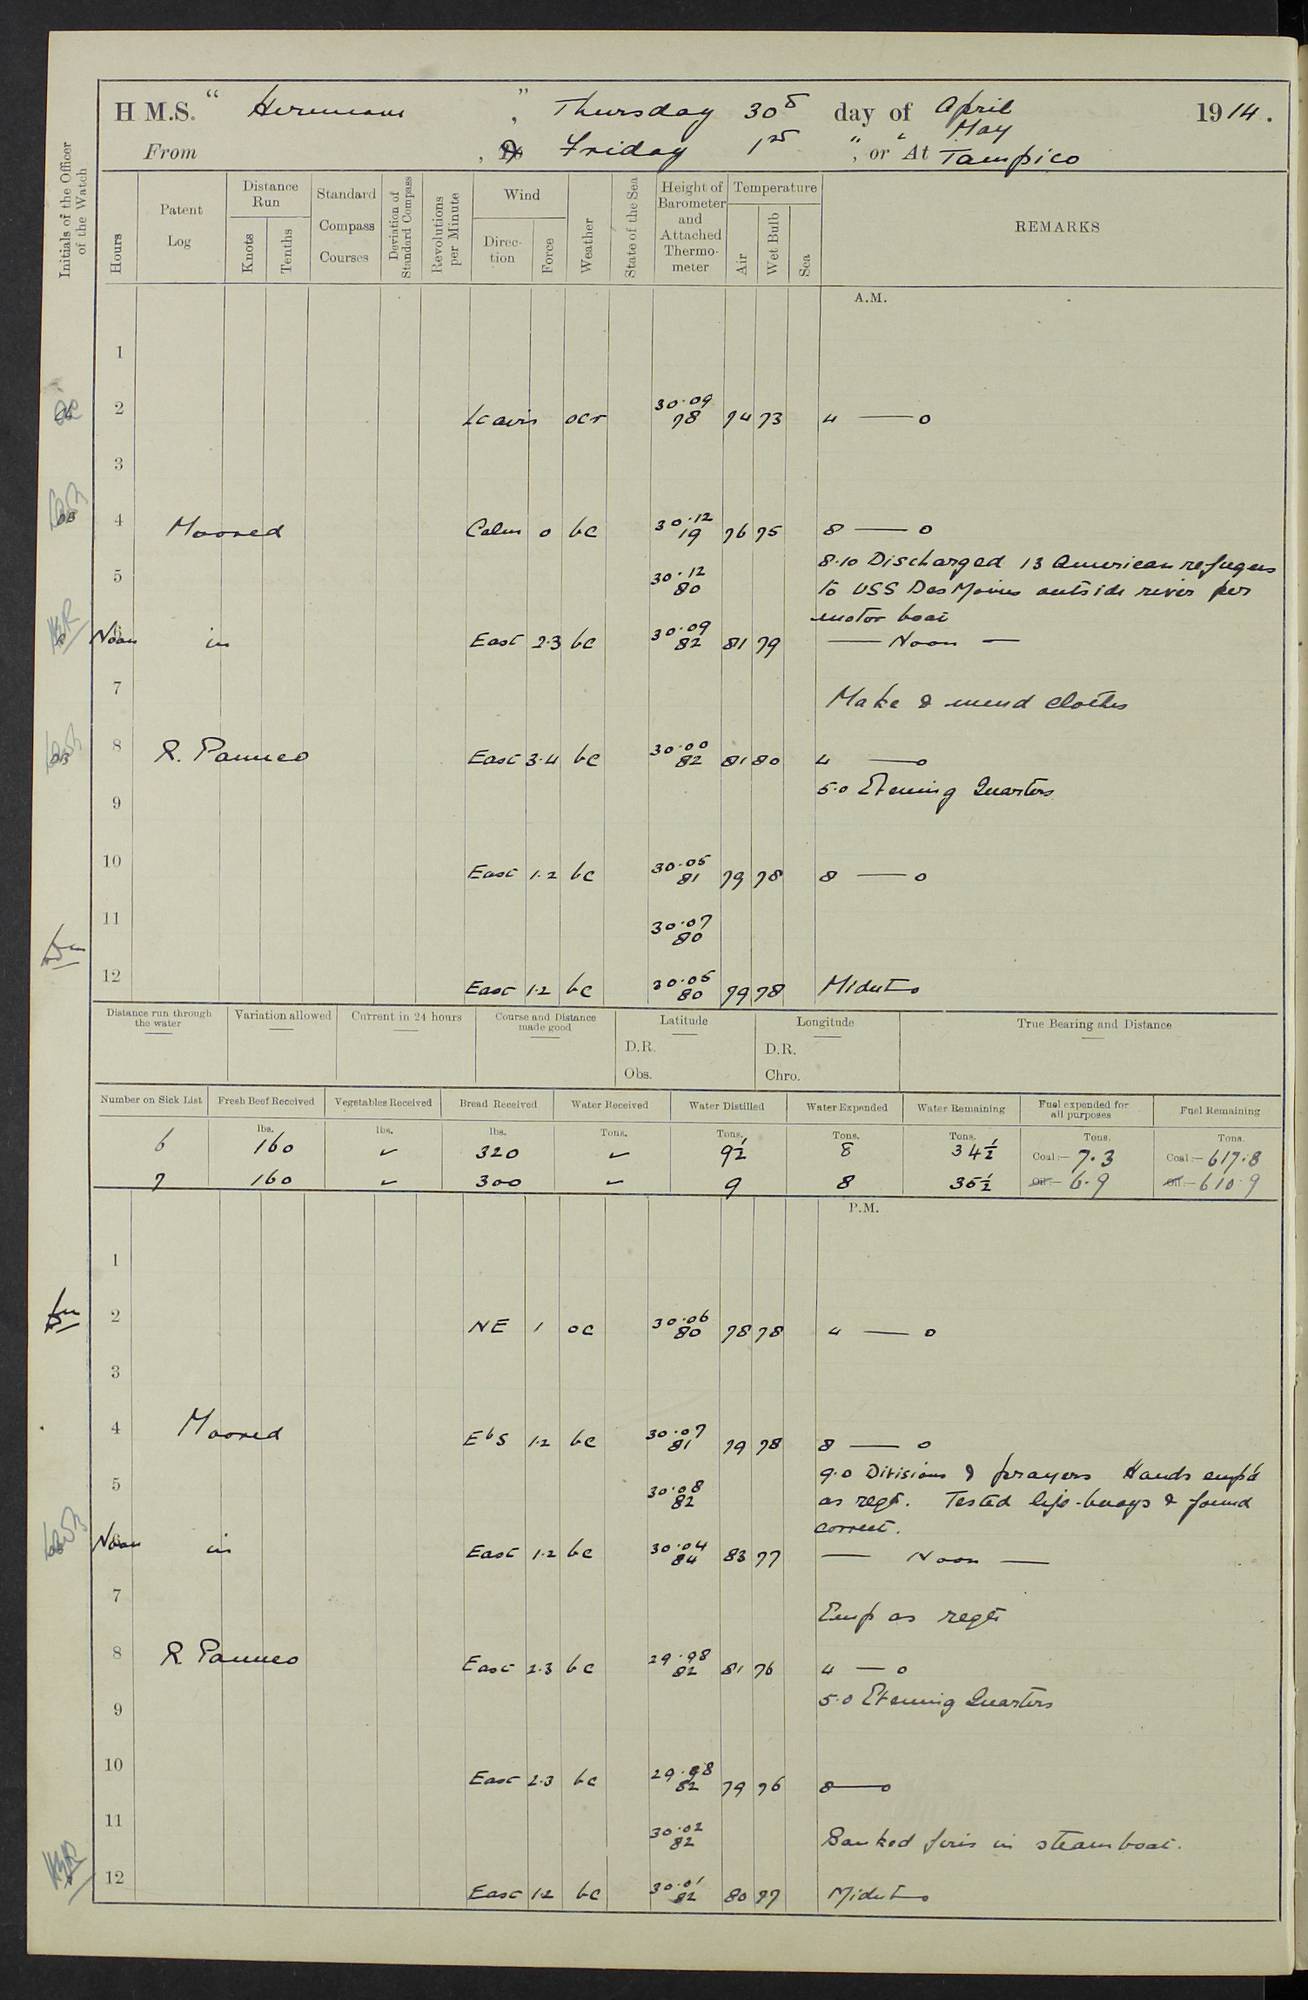 H M.S. " Hermione ", Thursday 30th day of April 1914.
From , To Friday 1st " " May, or At Tampico
Initials of the Officer of the Watch
Hours
Patent Log
Distance Run
Knots
Tenths
Standard Compass Courses
Deviation of Standard Compass
Revolutions per Minute
Wind
Direction
Force
Weather
State of the Sea
Height of Barometer and Attached Thermometer
Temperature
Air
Wet Bulb
Sea
REMARKS
A.M.
1
2 ocr 30.09 78 74 73 4 — o
3
4 Moored Calm 0 bc 30.12 79 76 75 8 — o
8.10 Discharged 13 American refugees
5 30.12 80 to USS Des Moines outside river per
motor boat
Noon in East 2.3 bc 30.09 82 81 79 — Noon —
7 Make & mend clothes
8 R. Panuco East 3.4 bc 30.00 82 81 80 4 — o
9 5.0 Evening Quarters
10 East 1.2 bc 30.05 81 79 78 8 — o
11 30.07 80
12 East 1.2 bc 30.05 80 79 78 Midnt
Distance run through the water
Variation allowed
Current in 24 hours
Course and Distance made good
Latitude
Longitude
True Bearing and Distance
D.R. D.R.
Obs. Chro.
Number on Sick List
Fresh Beef Received
Vegetables Received
Bread Received
Water Received
Water Distilled
Water Expended
Water Remaining
Fuel expended for all purposes
Fuel Remaining
lbs. lbs. lbs. Tons. Tons. Tons. Tons. Tons. Tons.
6 160 ✓ 320 ✓ 9½ 8 34½ Coal:— 7.3 Coal:— 617.8
7 160 ✓ 300 ✓ 9 8 35½ Oil:— 6.9 Oil:— 610.9
P.M.
1
2 NE 1 oc 30.06 80 78 78 4 — o
3
4 Moored EbS 1.2 bc 30.07 81 79 78 8 — o
9.0 Divisions & prayers Hands emp'd
5 30.08 82 as reqt. Tested life-buoys & found
correct.
Noon in East 1.2 bc 30.04 84 83 77 — Noon —
7 Emp as reqt
8 R Panuco East 2.3 bc 29.98 82 81 76 4 — o
9 5.0 Evening Quarters
10 East 2.3 bc 29.98 82 79 76 8 — o
11 30.02 82 Banked fires in steamboat.
12 East 1.2 bc 30.01 82 80 77 Midnt